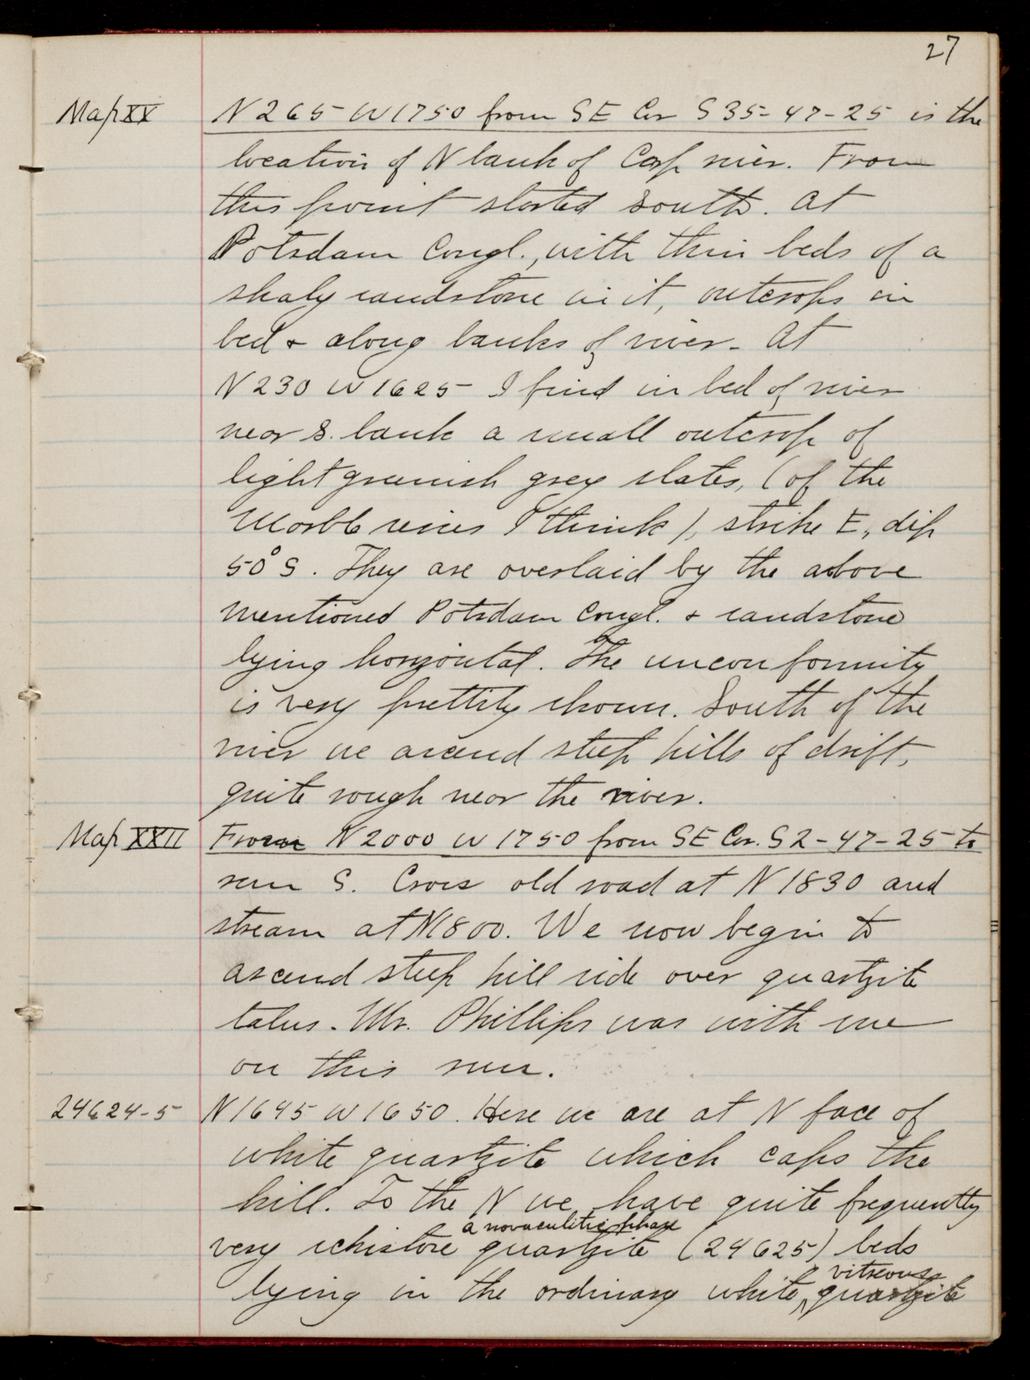 27
Map XX N 265 W 1750 from SE Cor S 35-47-25 is the
location of N bank of Carp river. From
this point started South. At
Potsdam Congl., with thin beds of a
shaly sandstone in it, outcrops in
bed & along banks of river. At
N 230 W 1625 I find in bed of river
near S. bank a small outcrop of
light greenish grey slates, (of the
series I think), strike E, dip
50° S. They are overlaid by the above
mentioned Potsdam Congl. & sandstone
lying horizontal. The unconformity
is very prettily shown. South of the
river we ascend steep hills of drift,
quite rough near the river.
Map XXII From N 2000 W 1750 from SE Cor. S 2-47-25 to
run S. Cross old road at N 1830 and
stream at N 1800. We now begin to
ascend steep hill side over quartzite
talus. Mr. Phillips was with me
on this run.
24624-5 N 1645 W 1650. Here we are at N face of
white quartzite which caps the
hill. To the N we have quite frequently
a novaculitic phase
very schistose quartzite (24625) beds
vitreous
lying in the ordinary white, quartzite